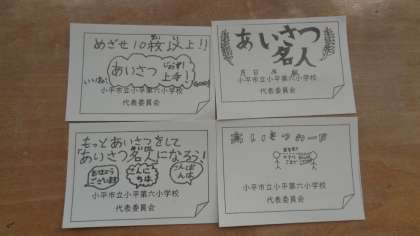 めざせ10枚以上!!
いいね!
あいさつ
上手!
小平市立小平第六小学校
代表委員会
あいさつ
名人
月 日
小平市立小平第六小学校
代表委員会
もっとあいさつをして
「あいさつ名人」になろう!
おはよう
ございます
こんに
ちは
こんば
んは
小平市立小平第六小学校
代表委員会
あいさつカード
小平市立小平第六小学校
代表委員会